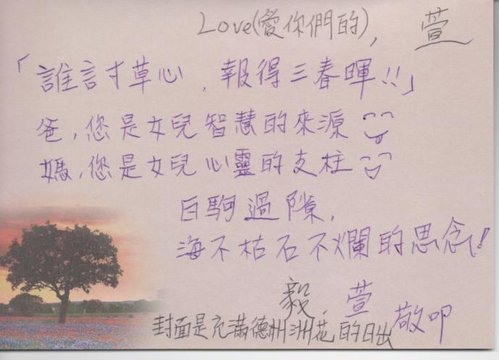 Love(愛你們的), 萱
「誰言寸草心，報得三春暉!!」
爸,您是女兒智慧的來源
媽,您是女兒心靈的支柱
白駒過隙,
海不枯石不爛的思念!!
毅、萱 敬叩
封面是充滿德州州花的日出